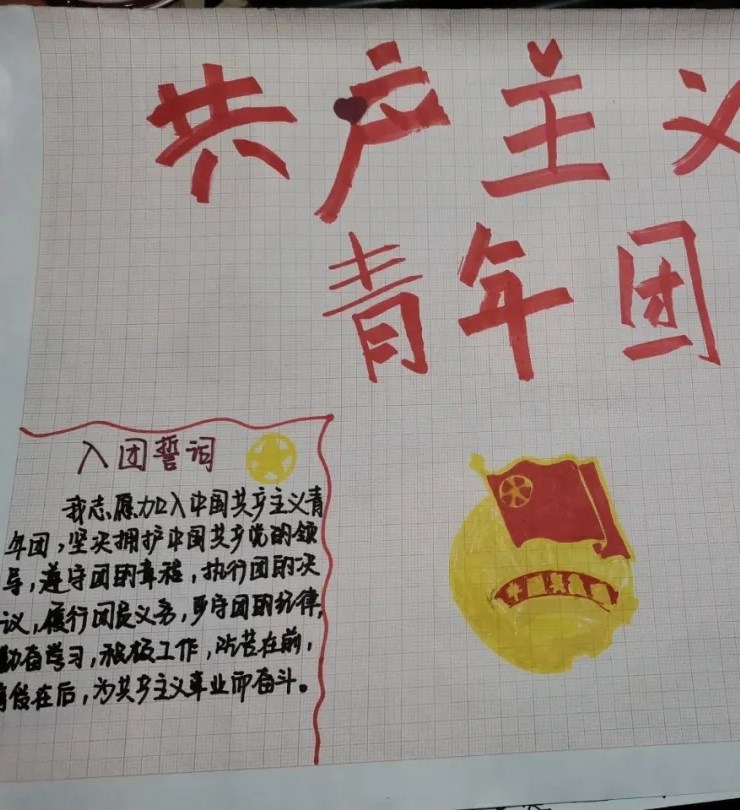 共产主义
青年团
入团誓词
我志愿加入中国共产主义青
年团，坚决拥护中国共产党的领
导，遵守团的章程，执行团的决
议，履行团员义务，严守团的纪律，
勤奋学习，积极工作，吃苦在前，
享受在后，为共产主义事业而奋斗。
中国共青团